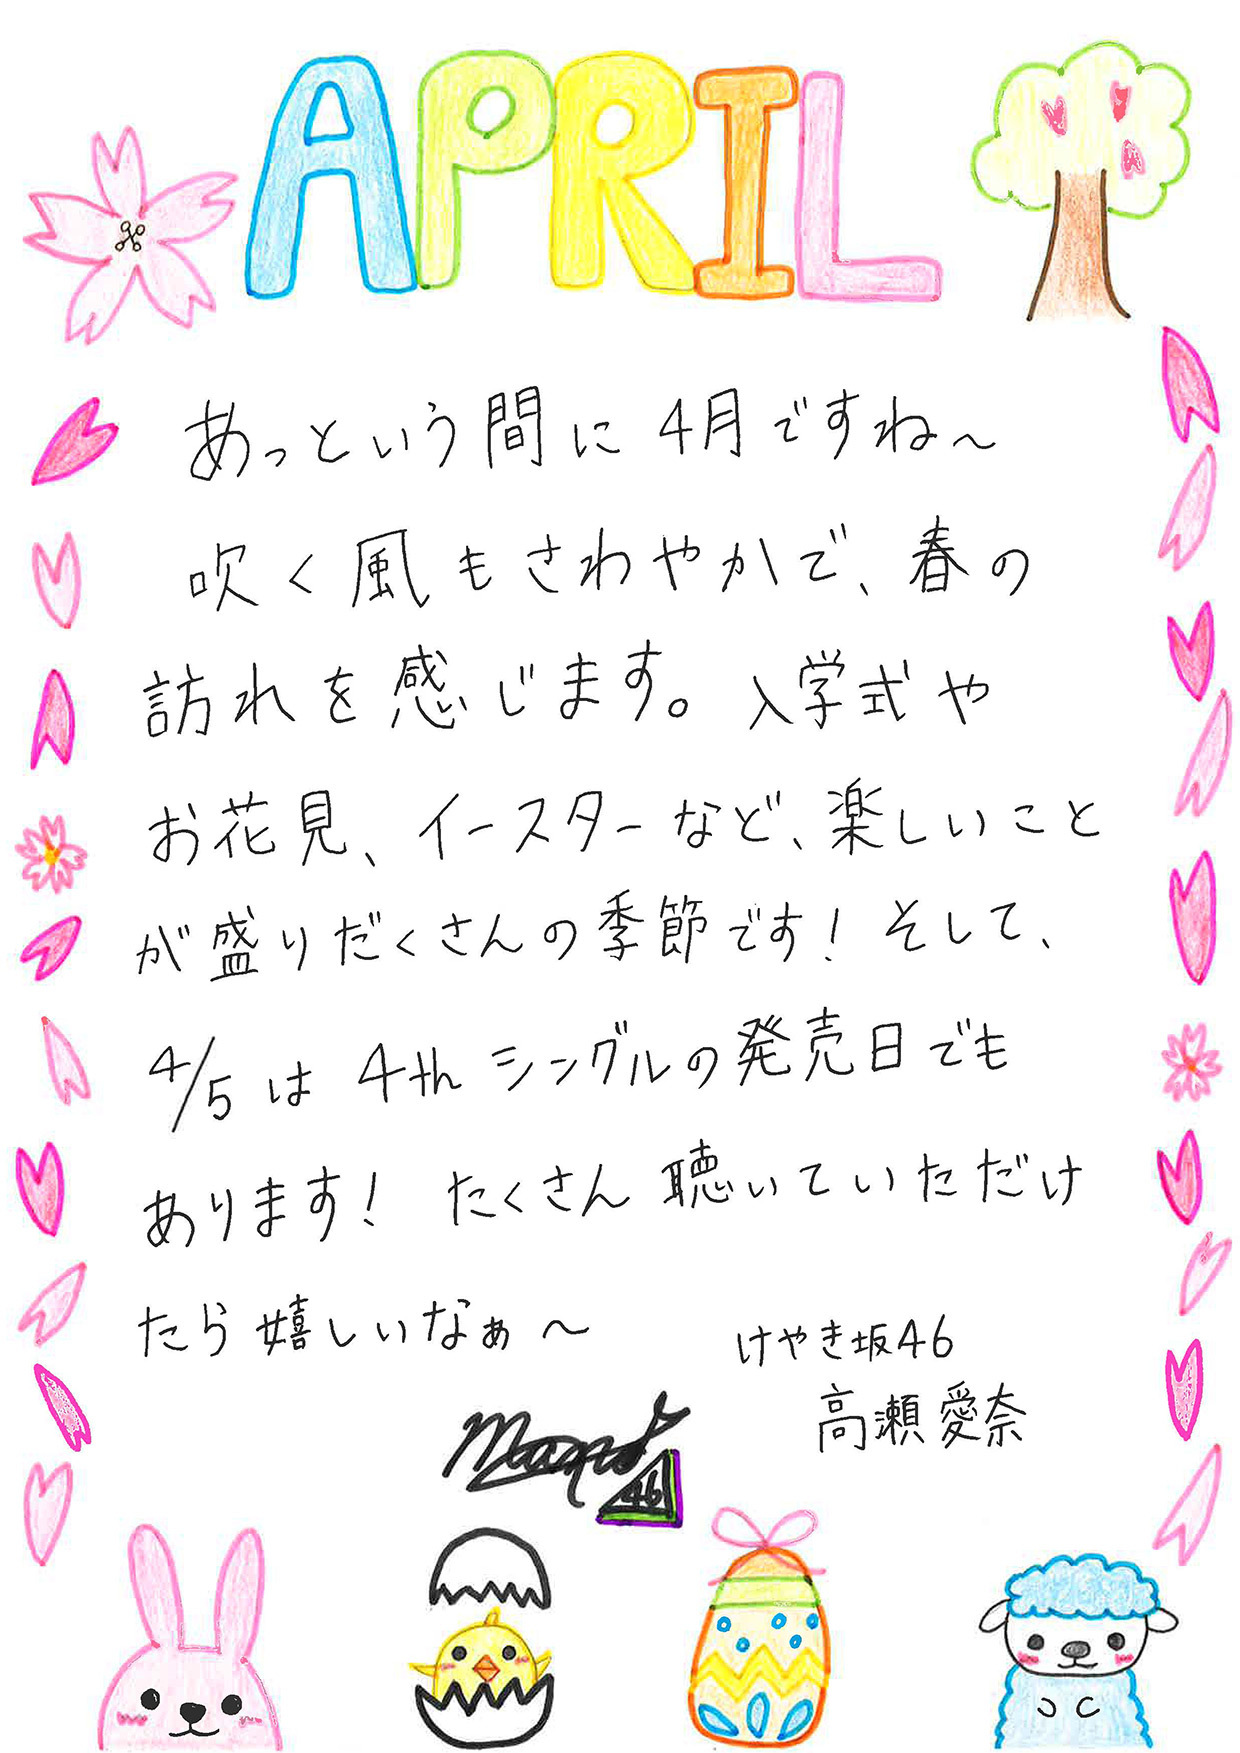 APRIL
あっという間に4月ですね〜
吹く風もさわやかで、春の
訪れを感じます。入学式や
お花見、イースターなど、楽しいこと
が盛りだくさんの季節です！そして、
4/5は 4thシングルの発売日でも
あります！ たくさん聴いていただけ
たら嬉しいなぁ〜
けやき坂46
高瀬愛奈
46